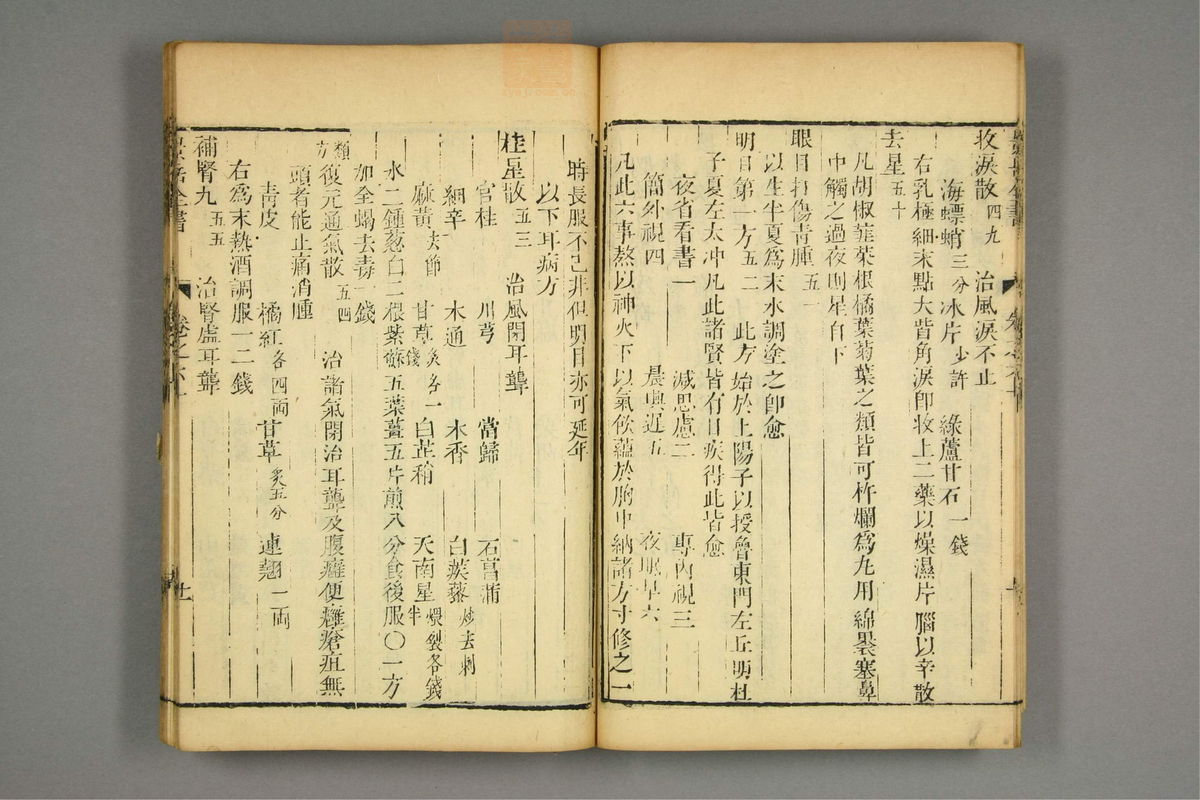 收淚散 四九 治風淚不止
海螵蛸 三分 冰片 少許 綠蘆甘石 一錢
右乳極細末點大眥角淚卽收上二藥以燥濕片腦以辛散
去星 五十
凡胡椒韮菜根橘葉菊葉之類皆可杵爛爲丸用綿褁塞鼻
中觸之過夜則星自下
眼目打傷青腫 五一
以生半夏爲末水調塗之卽愈
明目第一方 五二 此方始於上陽子以授魯東門左丘明杜
子夏左太冲凡此諸賢皆有目疾得此皆愈
夜省看書一 減思慮二 專內視三
簡外視四 晨興遲五 夜眠早六
凡此六事熬以神火下以氣篩蘊於胸中納諸方寸修之一
時長服不已非但明目亦可延年
以下耳病方
桂星散 五三 治風閉耳聾
官桂 川芎 當歸 石菖蒲
細辛 木通 木香 白蒺藜 炒去刺
麻黃 去節 甘草 炙各一錢 白芷稍 天南星 煨裂各錢半
水二鍾葱白二根紫蘇五葉薑五片煎八分食後服○一方
加全蝎去毒一錢
類方 復元通氣散 五四 治諸氣閉治耳聾及腹癰便癰瘡疽無
頭者能止痛消腫
青皮 橘紅 各四兩 甘草 炙五分 連翹 一兩
右爲末熱酒調服一二錢
補腎丸 五五 治腎虛耳聾